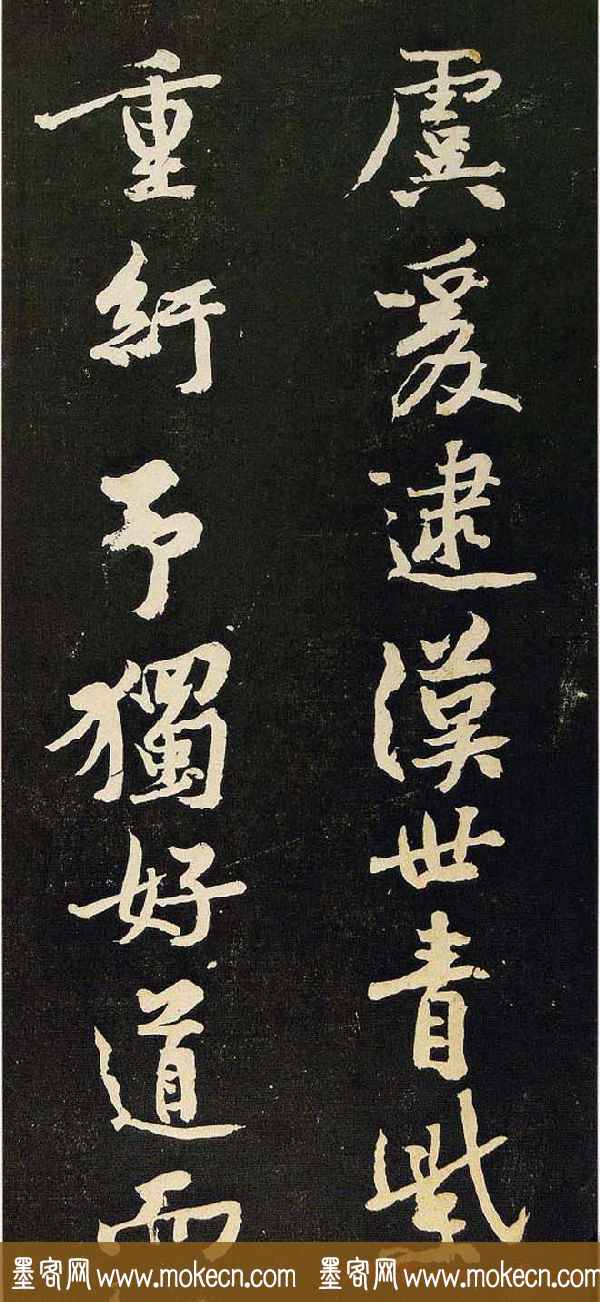 虞爰逮漢世青紫
重紆予獨好道而
墨客网 www.mokecn.com 墨客网 www.mokecn.com